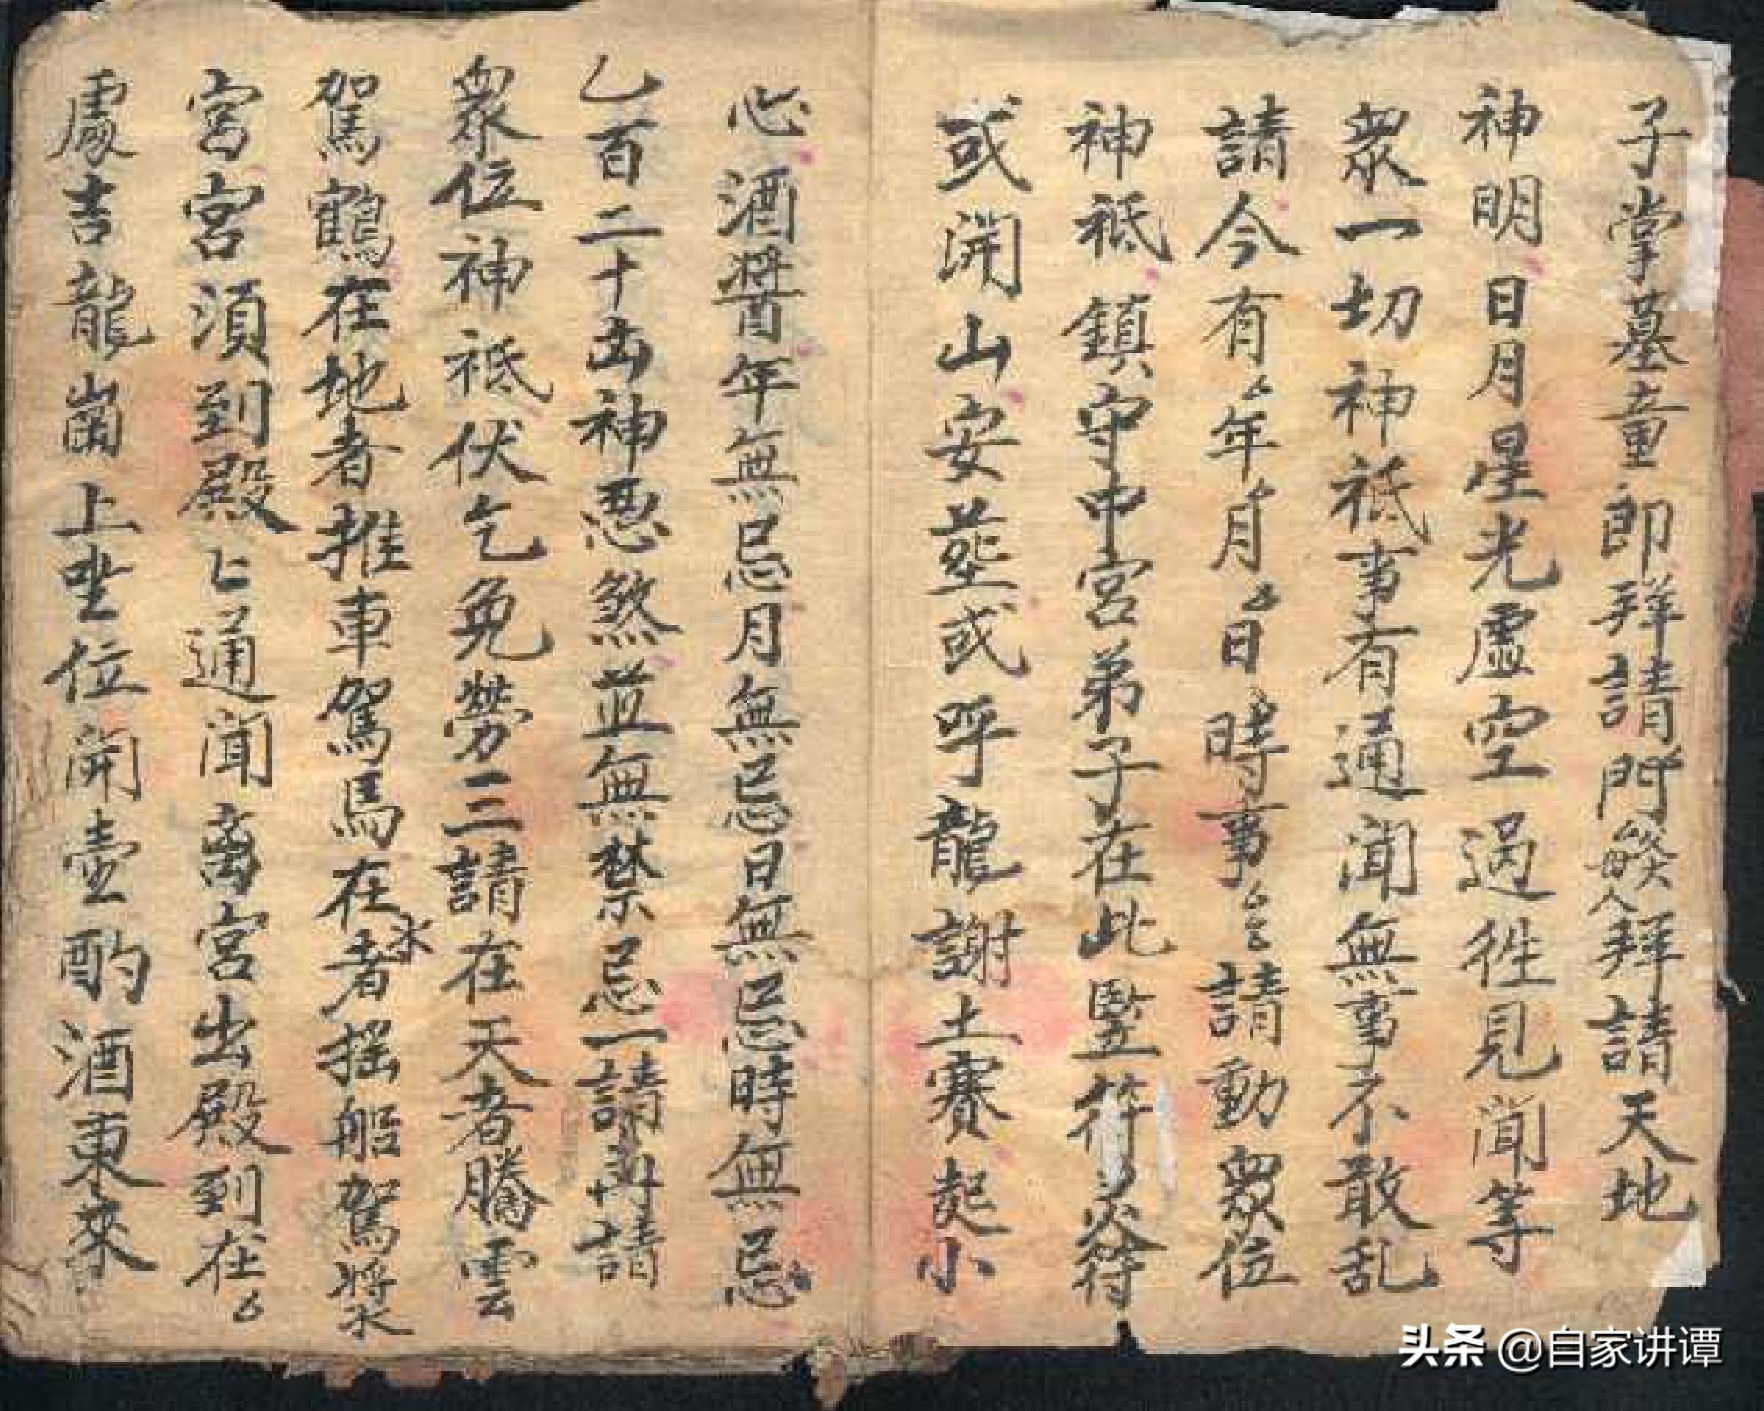 子掌墓童郎拜請門拜請天地
神明日月星光虛空過徃見闻等
眾一切神祗事有通闻無事不敢乱
請今有厶年厶月厶日厶時事厶請動眾位
神祗鎮守中宮弟子在此竪符
或開山安葬或呼龍謝土賽起小
心酒醬年無忌月無忌日無忌時無忌
乙百二十凶神惡煞並無禁忌一請再請
眾位神祗伏乞免勞三請在天者騰雲
駕鶴在地者推車駕馬在水者摇船駕槳
宮宮須到殿匕通闻离宮出殿到在厶
處吉龍崗上坐位開壺酌酒東來
头条 @自家讲谭